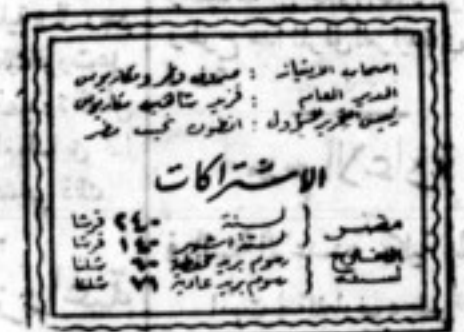 اصحاب الامتياز : صروف ونمر ومكاريوس
المدير العام : فريد شاهين مكاريوس
رئيس التحرير المسؤول : انطون نجيب مطر
الاشتراكات
مصر لسنة ٢٤٠ قرشا
لستة اشهر ١٤٠ قرشا
الخارج رسوم بريد مخفضة ٩٠ شلنا
لسنة رسوم بريد عادية شلنا